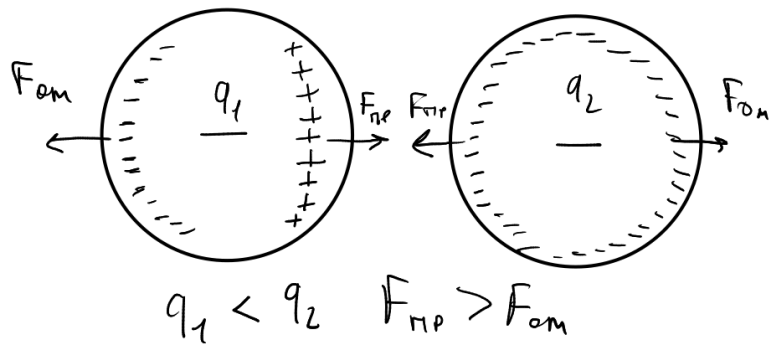 Fот
q₁
−
Fпр
Fпр
q₂
−
Fот
q₁ < q₂ Fпр > Fот